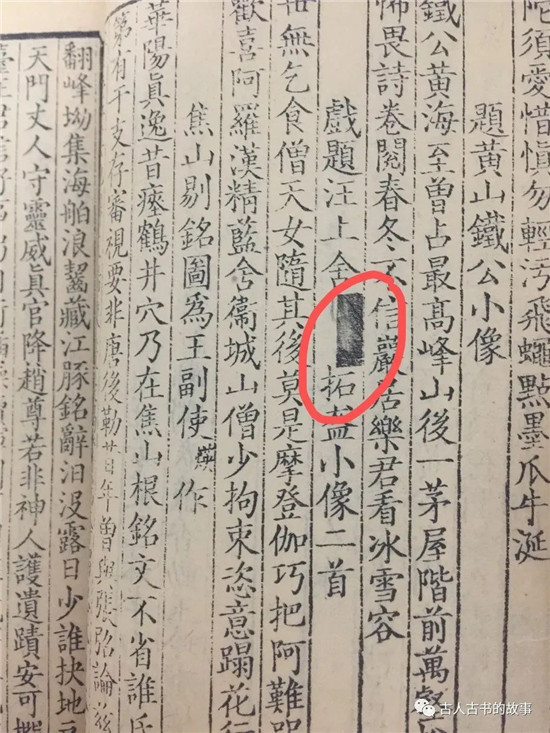 陀須愛惜慎勿輕汚飛蠅點墨瓜牛涎
題黃山鐵公小像
鐵公黃海至曾占最高峰山後一茅屋階前萬
怖畏詩卷閱春冬不信巖居樂君看冰雪容
戲題汪上舍 拓盋小像二首
無乞食僧天女隨其後莫是摩登伽巧把阿難
歡喜阿羅漢精藍舍衞城山僧少拘束恣意蹋花行
焦山剔銘圖爲王副使 作
華陽眞逸昔瘞鶴井穴乃在焦山根銘文不省誰氏
第有干支存審視要非唐後勒昔年曾與張弨論
翻峰坳集海舶浪齧藏江豚銘辭汨没露日少誰抉地
天門丈人守靈威眞官降趙尊若非神人護遺蹟安可
古人古书的故事